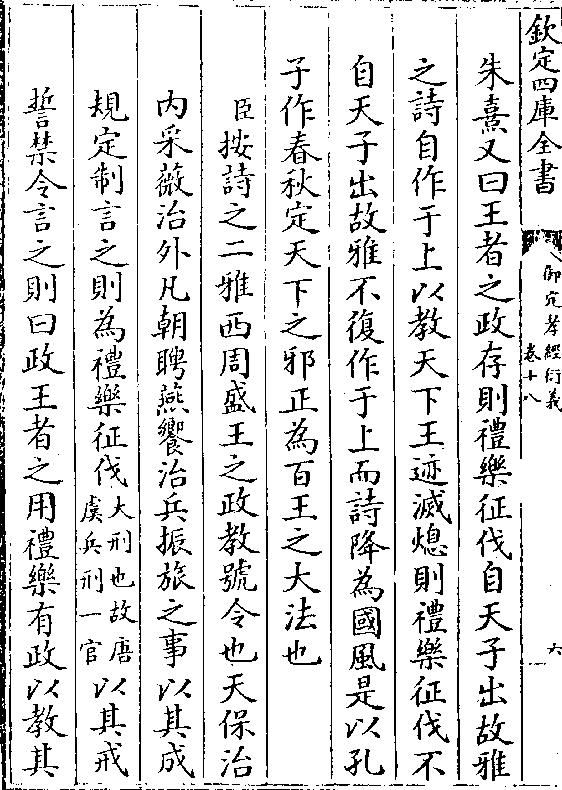 欽定四庫全書
御定孝經衍義
卷十八
六
朱熹又曰王者之政存則禮樂征伐自天子出故雅
之詩自作于上以教天下王迹滅熄則禮樂征伐不
自天子出故雅不復作于上而詩降為國風是以孔
子作春秋定天下之邪正為百王之大法也
臣按詩之二雅西周盛王之政教號令也天保治
内采薇治外凡朝聘燕饗治兵振旅之事以其成
規定制言之則為禮樂征伐大刑也故唐虞兵刑一官以其戒
誓禁令言之則曰政王者之用禮樂有政以教其